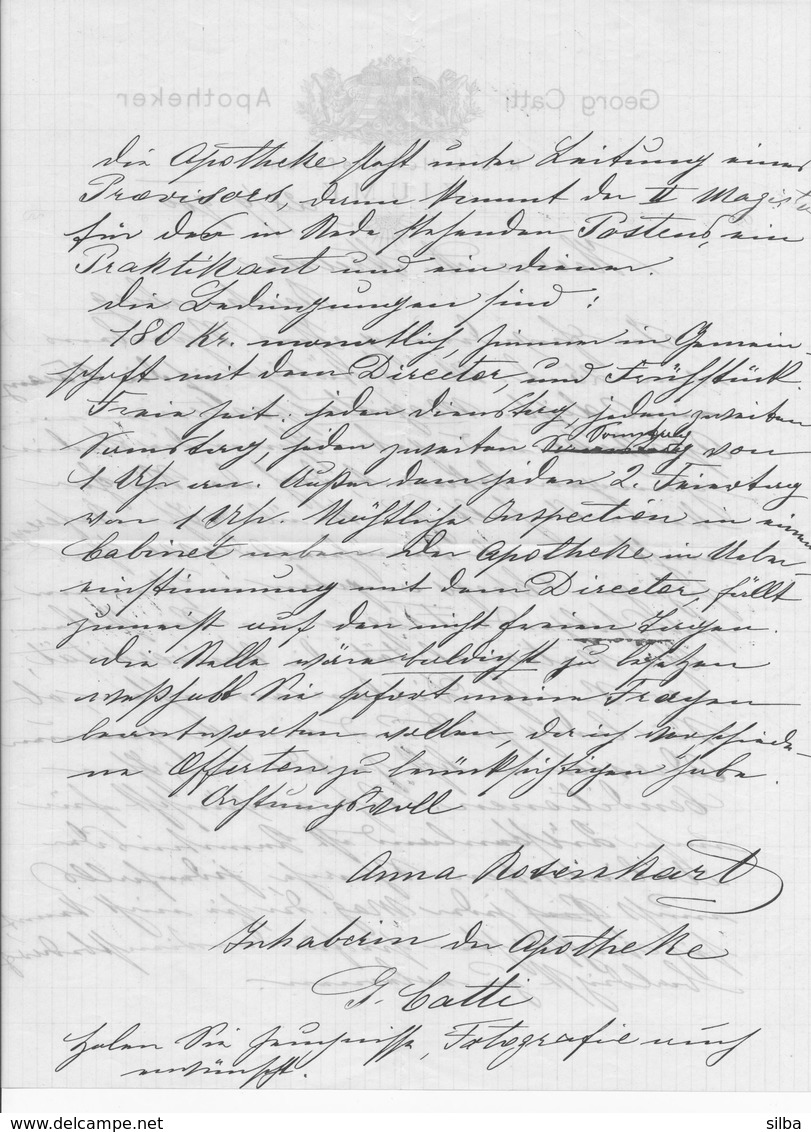 Georg Catti Apotheker
Die Apotheke steht unter Leitung eines
Provisors, dann kommt der II Magister
für den in Rede stehenden Postens, ein
Praktikant und ein Diener.
Die Bedingungen sind:
180 Kr. monatlich, Zimmer in Gemein-
schaft mit dem Director, und Frühstück
Freie Zeit: jeden Dienstag, jeden zweiten
Samstag, jeden zweiten Sonntag von
1 Uhr an. Außer dem jeden 2. Feiertag
von 1 Uhr. Nächtliche Inspection in einem
Cabinet neben der Apotheke in Ueber-
einstimmung mit dem Director, fällt
zumeist auf den nicht freien Tagen.
Die Stelle wäre baldigst zu besetzen
weßhalb Sie sofort meine Fragen
beantworten wollen, da ich verschiede-
ne Offerten zu berücksichtigen habe.
Achtungsvoll
Anna Rosenkart
Inhaberin der Apotheke
G. Catti
Sie Zeugnisse, Fotografie auch
erwünscht.
delcampe.net
silba